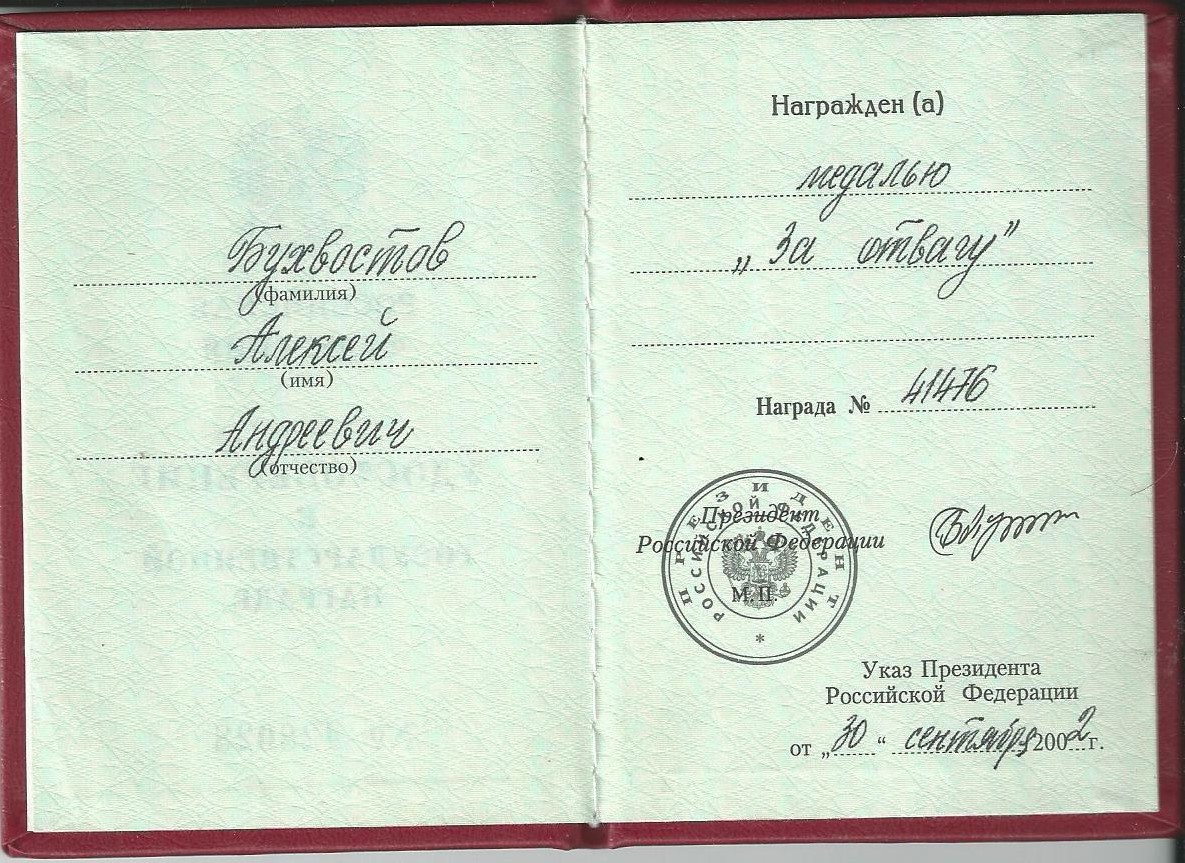 Бухвостов
(фамилия)
Алексей
(имя)
Андреевич
(отчество)
Награжден (а)
медалью
„За отвагу”
Награда № 41476
ПРЕЗИДЕНТ
РОССИЙСКОЙ ФЕДЕРАЦИИ
*
Президент
Российской Федерации
М.П.
Указ Президента
Российской Федерации
от „30“ сентября 2002 г.